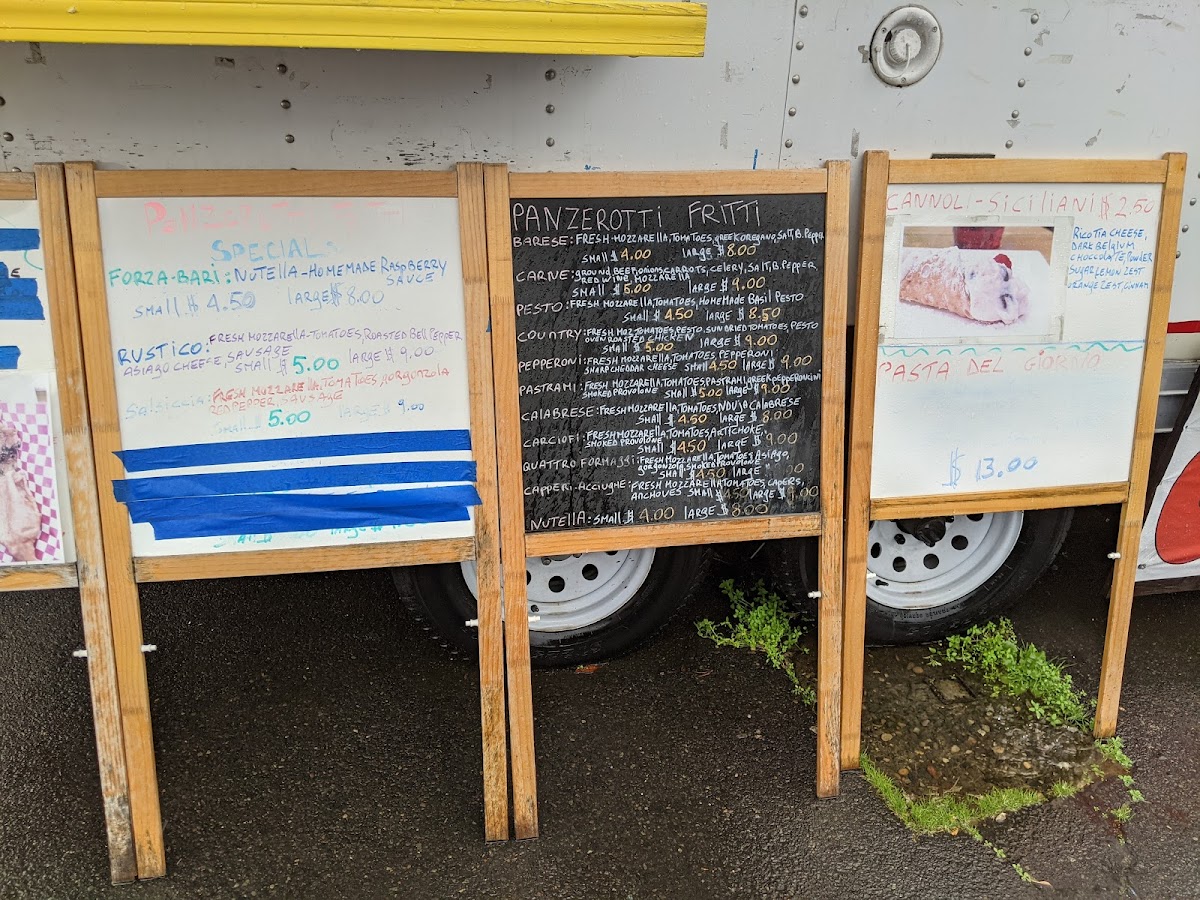 SPECIALS
FORZA-BARI: NUTELLA-HOMEMADE RASPBERRY
SAUCE
SMALL $ 4.50 LARGE $ 8.00
RUSTICO: FRESH MOZZARELLA-TOMATOES, ROASTED BELL PEPPER
ASIAGO CHEESE, SAUSAGE
SMALL $ 5.00 LARGE $ 9.00
Salsiccia: FRESH MOZZARELLA, TOMATOES, gORgONZOLA
RED PEPPER, SAUSAGE
SMALL $ 5.00 LARGE $ 9.00
PANZEROTTI FRITTI
BARESE: FRESH MOZZARELLA, TOMATOES, gREEK OREGANO, SALT, B. PEPPER
SMALL $ 4.00 LARGE $ 8.00
CARNE: gROUND BEEF, ONIONS, CARROTS, CELERY, SALT, B. PEPPER
RED WINE, MOZZARELLA
SMALL $ 5.00 LARGE $ 9.00
PESTO: FRESH MOZZARELLA, TOMATOES, HOMEMADE BASIL PESTO
SMALL $ 4.50 LARGE $ 8.50
COUNTRY: FRESH MOZ TOMATOES, PESTO, SUN DRIED TOMATOES, PESTO
OVEN ROASTED CHICKEN
SMALL $ 5.00 LARGE $ 9.00
PEPPERONI: FRESH MOZZARELLA, TOMATOES, PEPPERONI
SHARP CHEDDAR CHEESE SMALL $ 4.50 LARGE $ 9.00
PASTRAMI: FRESH MOZZARELLA, TOMATOES, PASTRAMI, gREEK PEPPERONCINI
SMOKED PROVOLONE SMALL $ 5.00 LARGE $ 9.00
CALABRESE: FRESH MOZZARELLA, TOMATOES, NDUJA CALABRESE
SMALL $ 4.50 LARGE $ 8.00
CARCIOFI: FRESH MOZZARELLA, TOMATOES, ARTICHOKE,
SMOKED PROVOLONE SMALL $ 4.50 LARGE $ 9.00
QUATTRO FORMAGGI: FRESH MOZZARELLA, TOMATOES ASIAGO,
gORgONZOLA, SMOKED PROVOLONE
SMALL $ 4.50 LARGE 9.00
CAPPERI-ACCIUGHE: FRESH MOZZARELLA, TOMATOES, CAPERS,
ANCHOVES SMALL $ 4.50 LARGE $ 9.00
NUTELLA: SMALL $ 4.00 LARGE $ 8.00
CANNOLI-SICILIANI $ 2.50
RICOTTA CHEESE,
DARK BELGIUM
CHOCCOLATE, POWDER
SUGAR LEMON ZEST
ORANGE ZEST, CINNAM
PASTA DEL GIORNO
$ 13.00